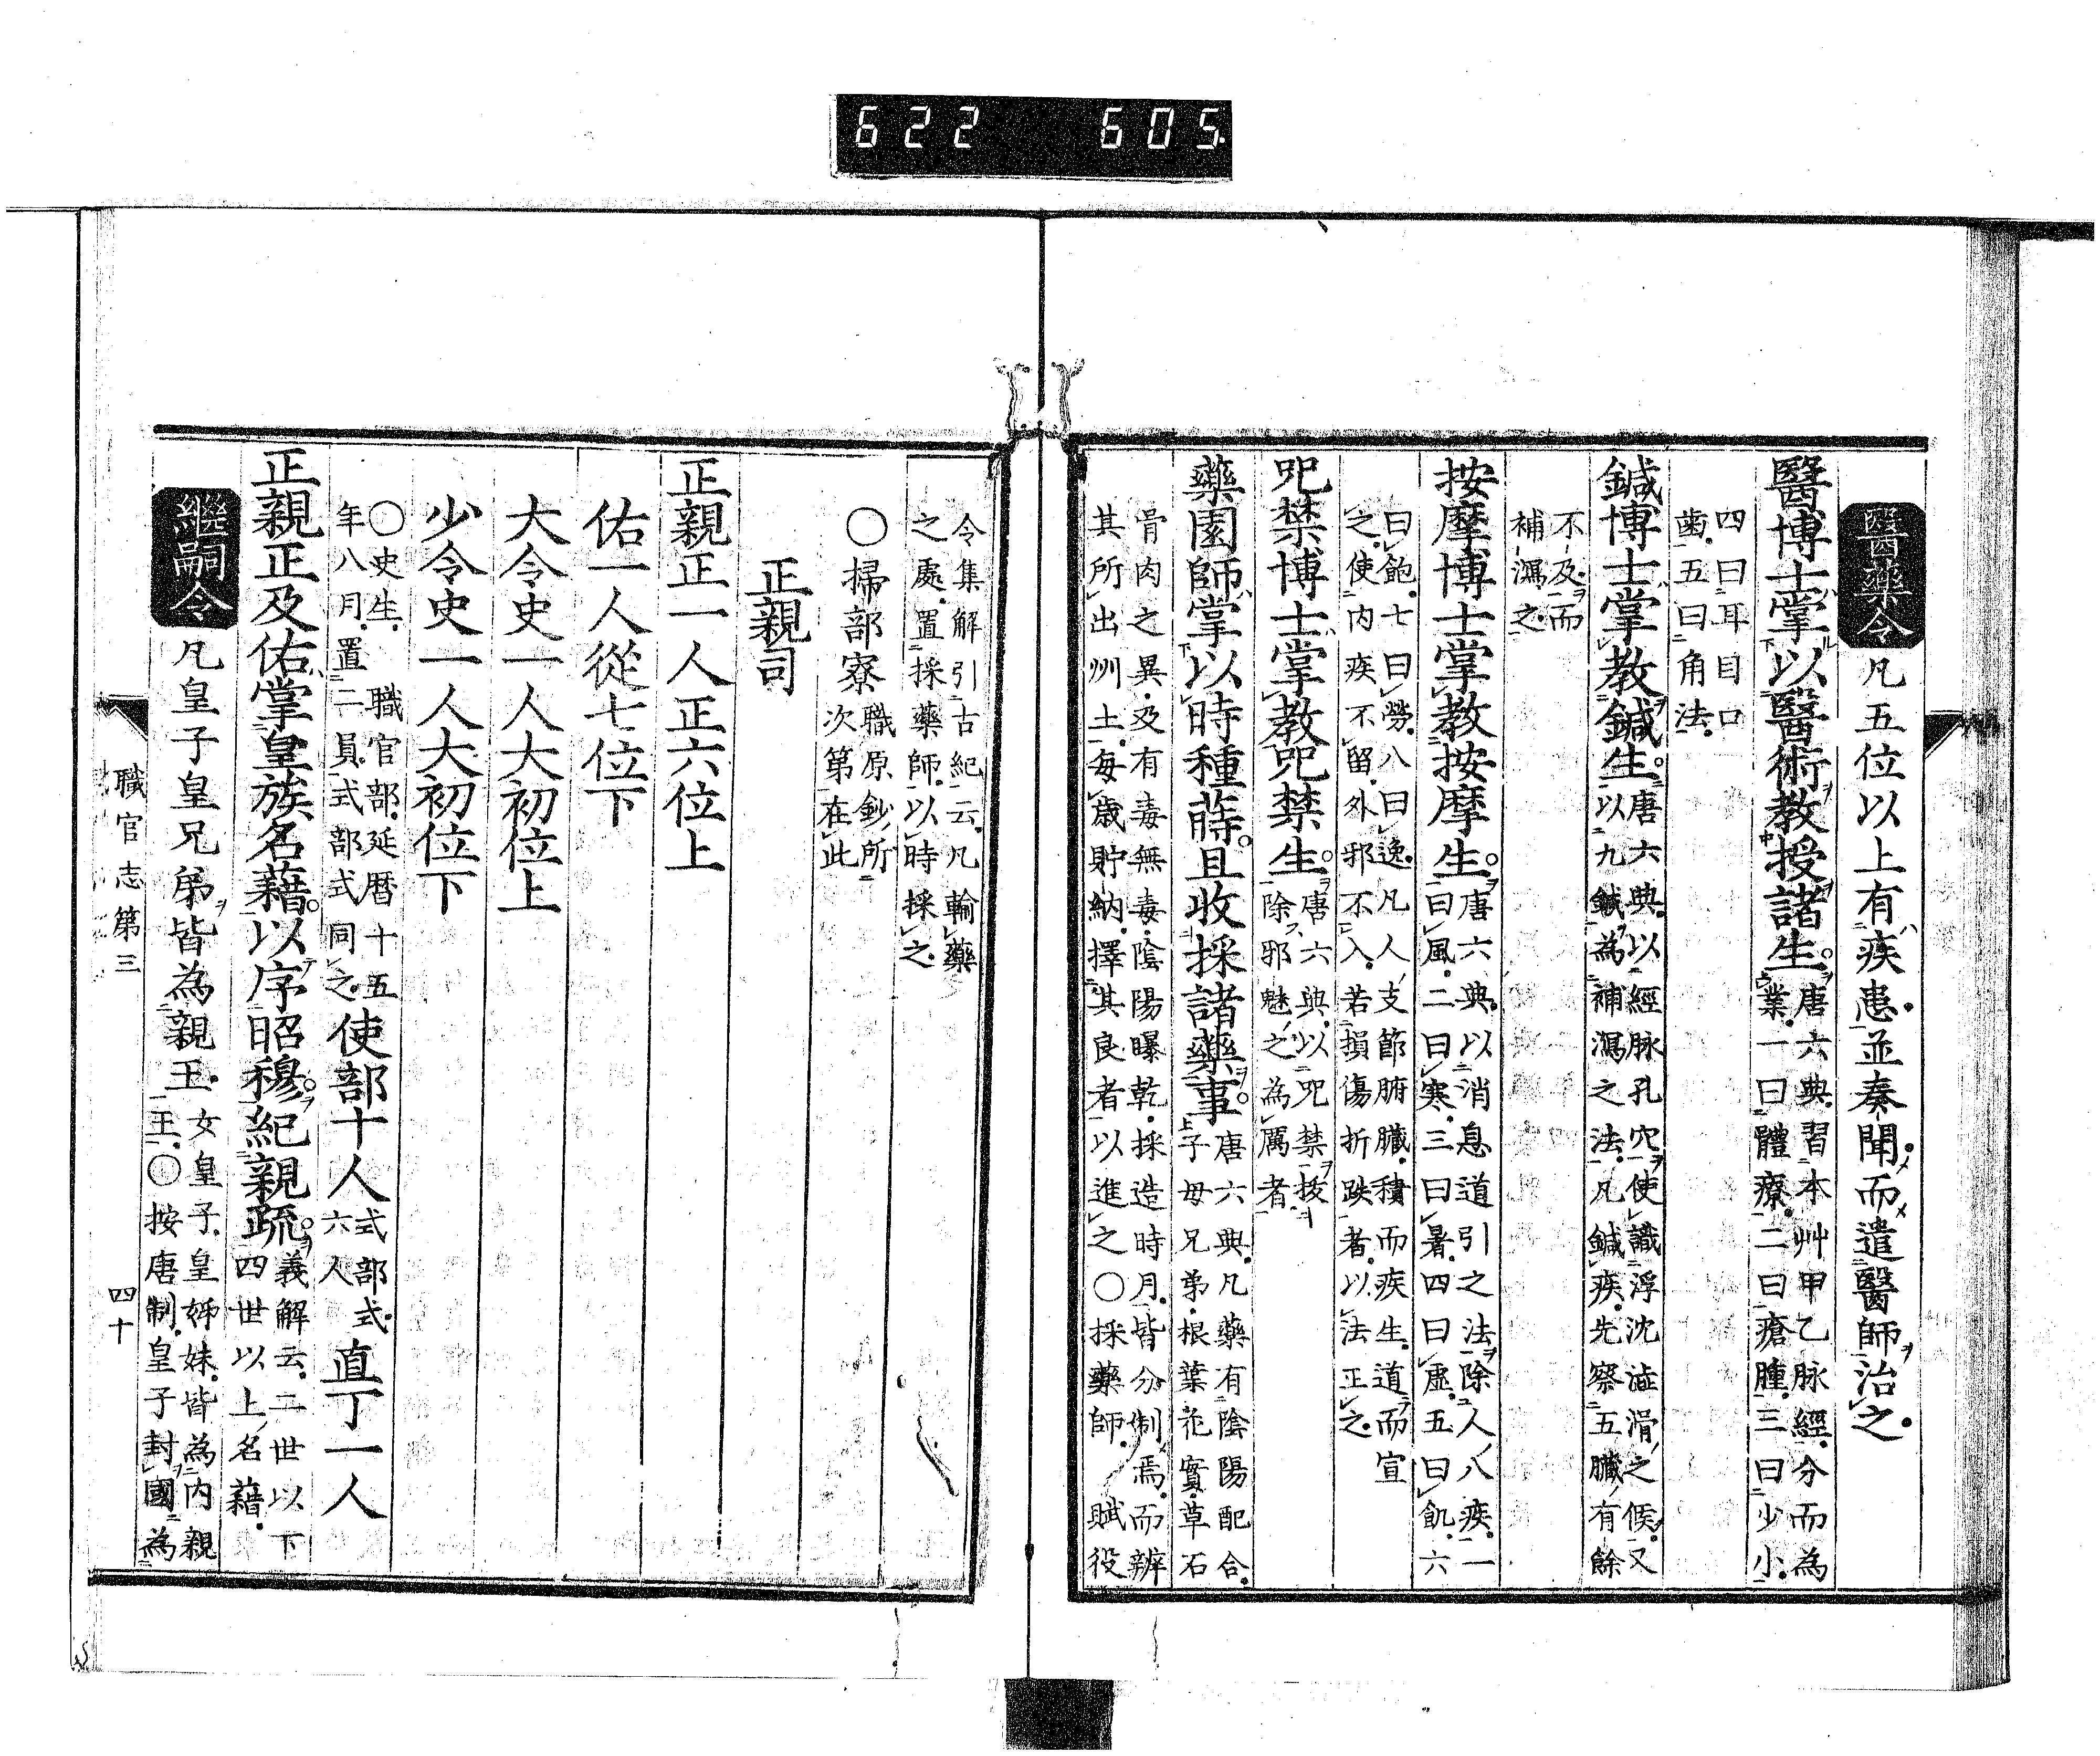 622 605
醫藥令 凡五位以上有疾患並奏聞而遣醫師治之
醫博士掌以醫術教授諸生 唐六典習本艸甲乙脉經分而為
業一曰體療二曰瘡腫三曰少小
四曰耳目口
齒五曰角法
鍼博士掌教鍼生 唐六典以經脉孔穴使識浮沈澁滑之候又
以九鍼為補瀉之法凡鍼疾先察五臟有餘
不及而
補瀉之
按摩博士掌教按摩生 唐六典以消息道引之法除人八疾一
曰風二曰寒三曰暑四曰虛五曰飢六
曰飽七曰勞八曰逸凡人支節腑臟積而疾生道而宣
之使內疾不留外邪不入若損傷折跌者以法正之
咒禁博士掌教咒禁生 唐六典以咒禁拔
除邪魅之為厲者
藥園師掌以時種蒔且收採諸藥事 唐六典凡藥有陰陽配合
子母兄弟根葉花實草石
骨肉之異及有毒無毒陰陽曝乾採造時月皆分制焉而辨
其所出州土每歲貯納擇其良者以進之〇採藥師賦役
令集解引古紀云凡輸藥
之處置採藥師以時採之
〇掃部寮 職原鈔所
次第在此
正親司
正親正一人正六位上
佑一人從七位下
大令史一人大初位上
少令史一人大初位下
〇史生 職官部延暦十五
年八月置二員式部式同之 使部十人 式部式
六人 直丁一人
正親正及佑掌皇族名籍以序昭穆紀親疏 義解云二世以下
四世以上名籍
継嗣令 凡皇子皇兄弟皆為親王 女皇子皇姊妹皆為內親
王〇按唐制皇子封國為
職官志第三
四十